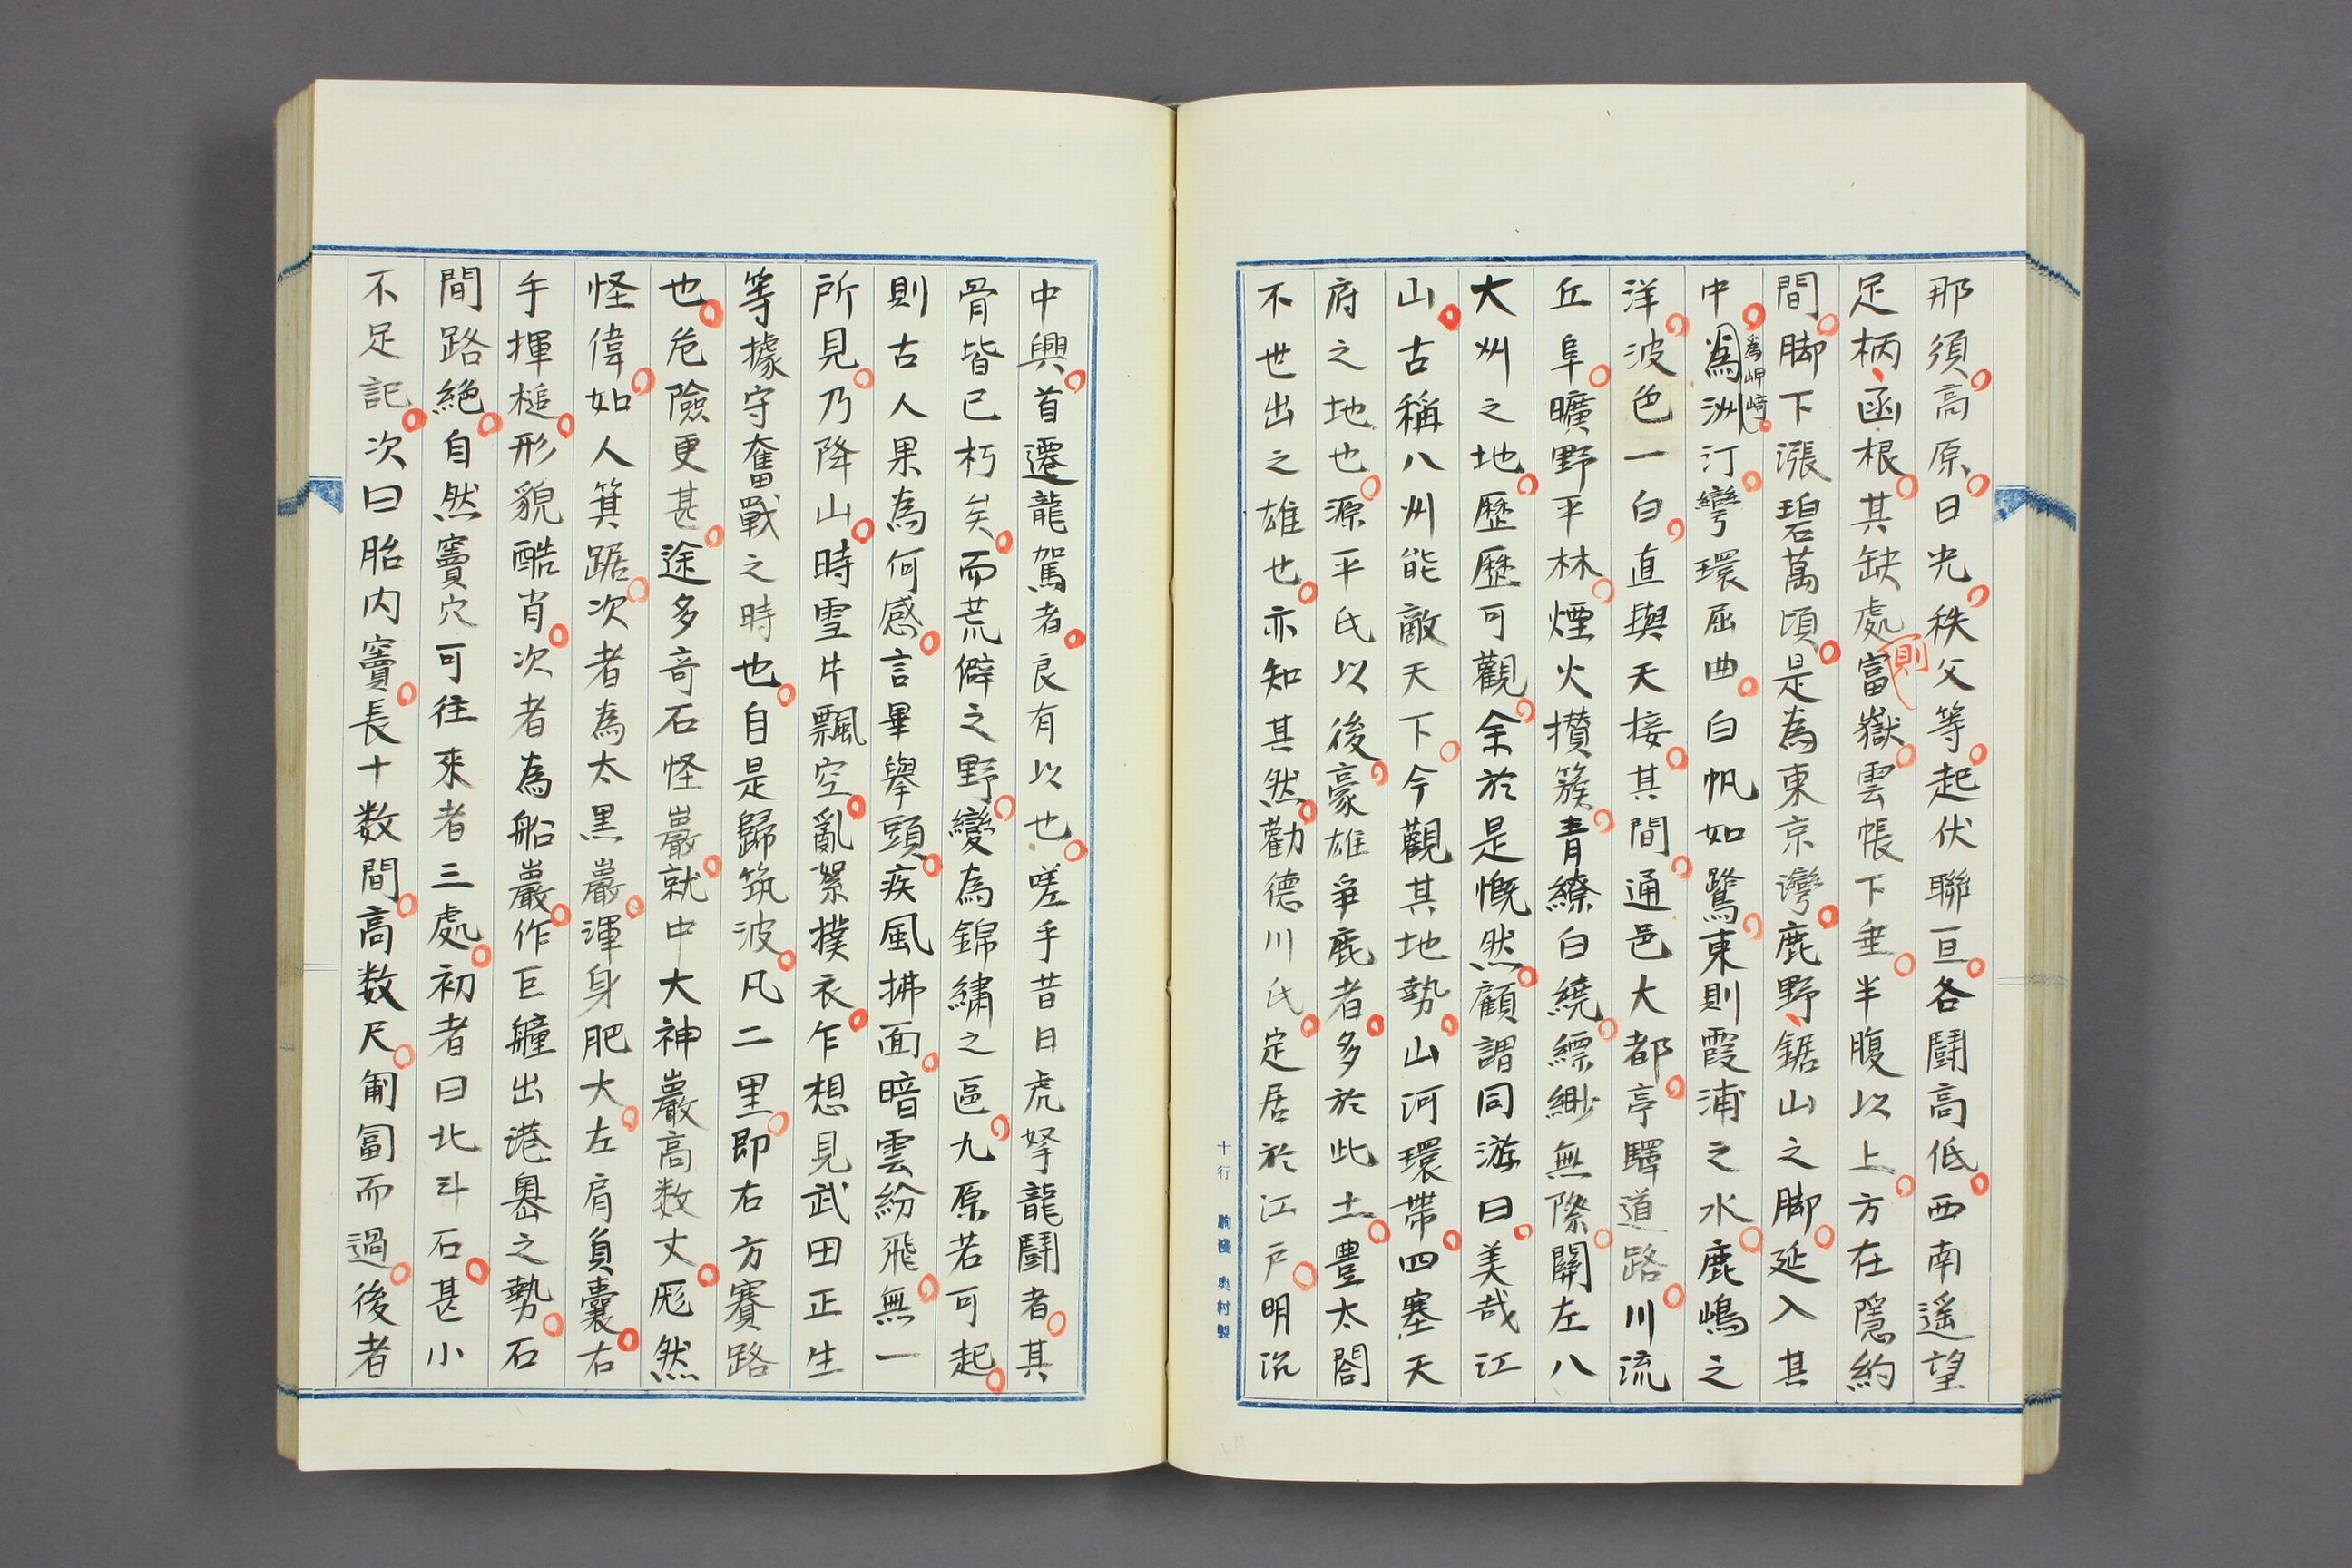 那須高原日光秩父等起伏聯亘各鬪高低西南遥望
足柄函根其缺處則富嶽雲帳下垂半腹以上方在隱約
間脚下漲碧萬頃是為東京灣鹿野鋸山之脚延入其
中為岬﨑為洲汀彎環屈曲白帆如鷺東則霞浦之水鹿嶋之
洋波色一白直與天接其間通邑大都亭驛道路川流
丘阜曠野平林煙火攅簇青繚白繞縹緲無際關左八
大州之地歷歷可觀余於是慨然顧謂同游曰美哉江
山古稱八州能敵天下今觀其地勢山河環帶四塞天
府之地也源平氏以後豪雄爭鹿者多於此土豊太閤
不世出之雄也亦知其然勸德川氏定居於江戶明況
十行 奥村製
中興首遷龍駕者良有以也嗟乎昔日虎拏龍鬪者其
骨皆已朽矣而荒僻之野變為錦繡之區九原若可起
則古人果為何感言畢舉頭疾風拂面暗雲紛飛無一
所見乃降山時雪片飄空亂絮撲衣乍想見武田正生
等據守奮戰之時也自是歸筑波凡二里即右方賽路
也危險更甚途多奇石怪巖就中大神巖高数丈厖然
怪偉如人箕踞次者為太黑巖渾身肥大左肩負囊右
手揮槌形貌酷肖次者為船巖作巨艟出港與之勢石
間路絕自然竇穴可往來者三處初者曰北斗石甚小
不足記次曰胎内竇長十数間高数尺匍匐而過後者